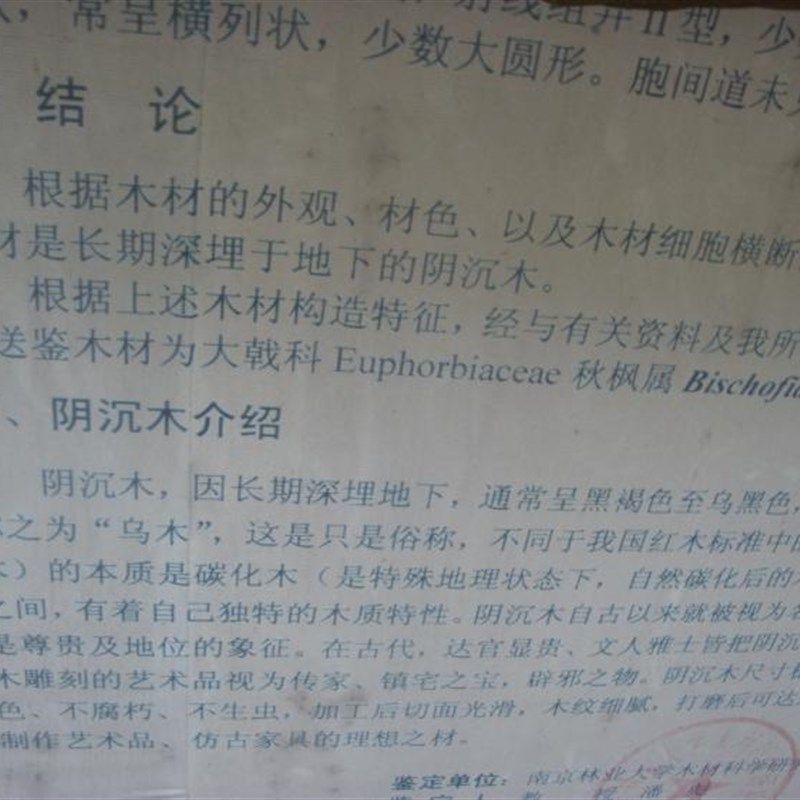 常呈横列状，少数大圆形。胞间道未
射线组织II型，少
结 论
根据木材的外观、材色、以及木材细胞横断
材是长期深埋于地下的阴沉木。
根据上述木材构造特征，经与有关资料及我所
送鉴木材为大戟科 Euphorbiaceae 秋枫属 Bischofia
、阴沉木介绍
阴沉木，因长期深埋地下，通常呈黑褐色至乌黑色，
之为“乌木”，这是只是俗称，不同于我国红木标准中
）的本质是碳化木（是特殊地理状态下，自然碳化后的
之间，有着自己独特的木质特性。阴沉木自古以来就被视为
是尊贵及地位的象征。在古代，达官显贵、文人雅士皆把阴沉
木雕刻的艺术品视为传家、镇宅之宝，辟邪之物。阴沉木尺寸
色、不腐朽、不生虫，加工后切面光滑，木纹细腻，打磨后可达
制作艺术品、仿古家具的理想之材。
鉴定单位：南京林业大学木材科学研
鉴 定 人 教 授 潘